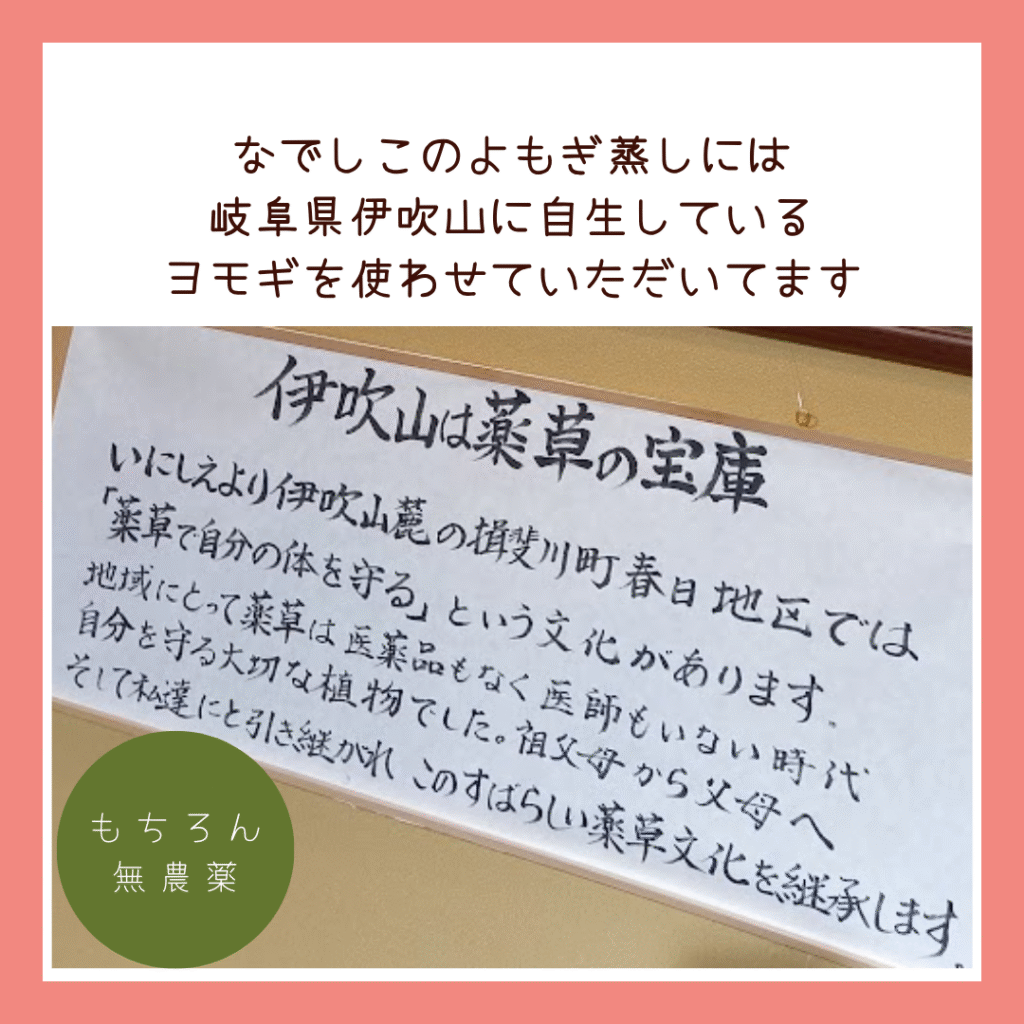 なでしこのよもぎ蒸しには
岐阜県伊吹山に自生している
ヨモギを使わせていただいてます
伊吹山は薬草の宝庫
いにしえより伊吹山麓の揖斐川町春日地区では
「薬草で自分の体を守る」という文化があります。
地域にとって薬草は医薬品もなく医師もいない時代
自分を守る大切な植物でした。祖父母から父母へ
そして私達にと引き継がれ このすばらしい薬草文化を継承します。
もちろん
無農薬